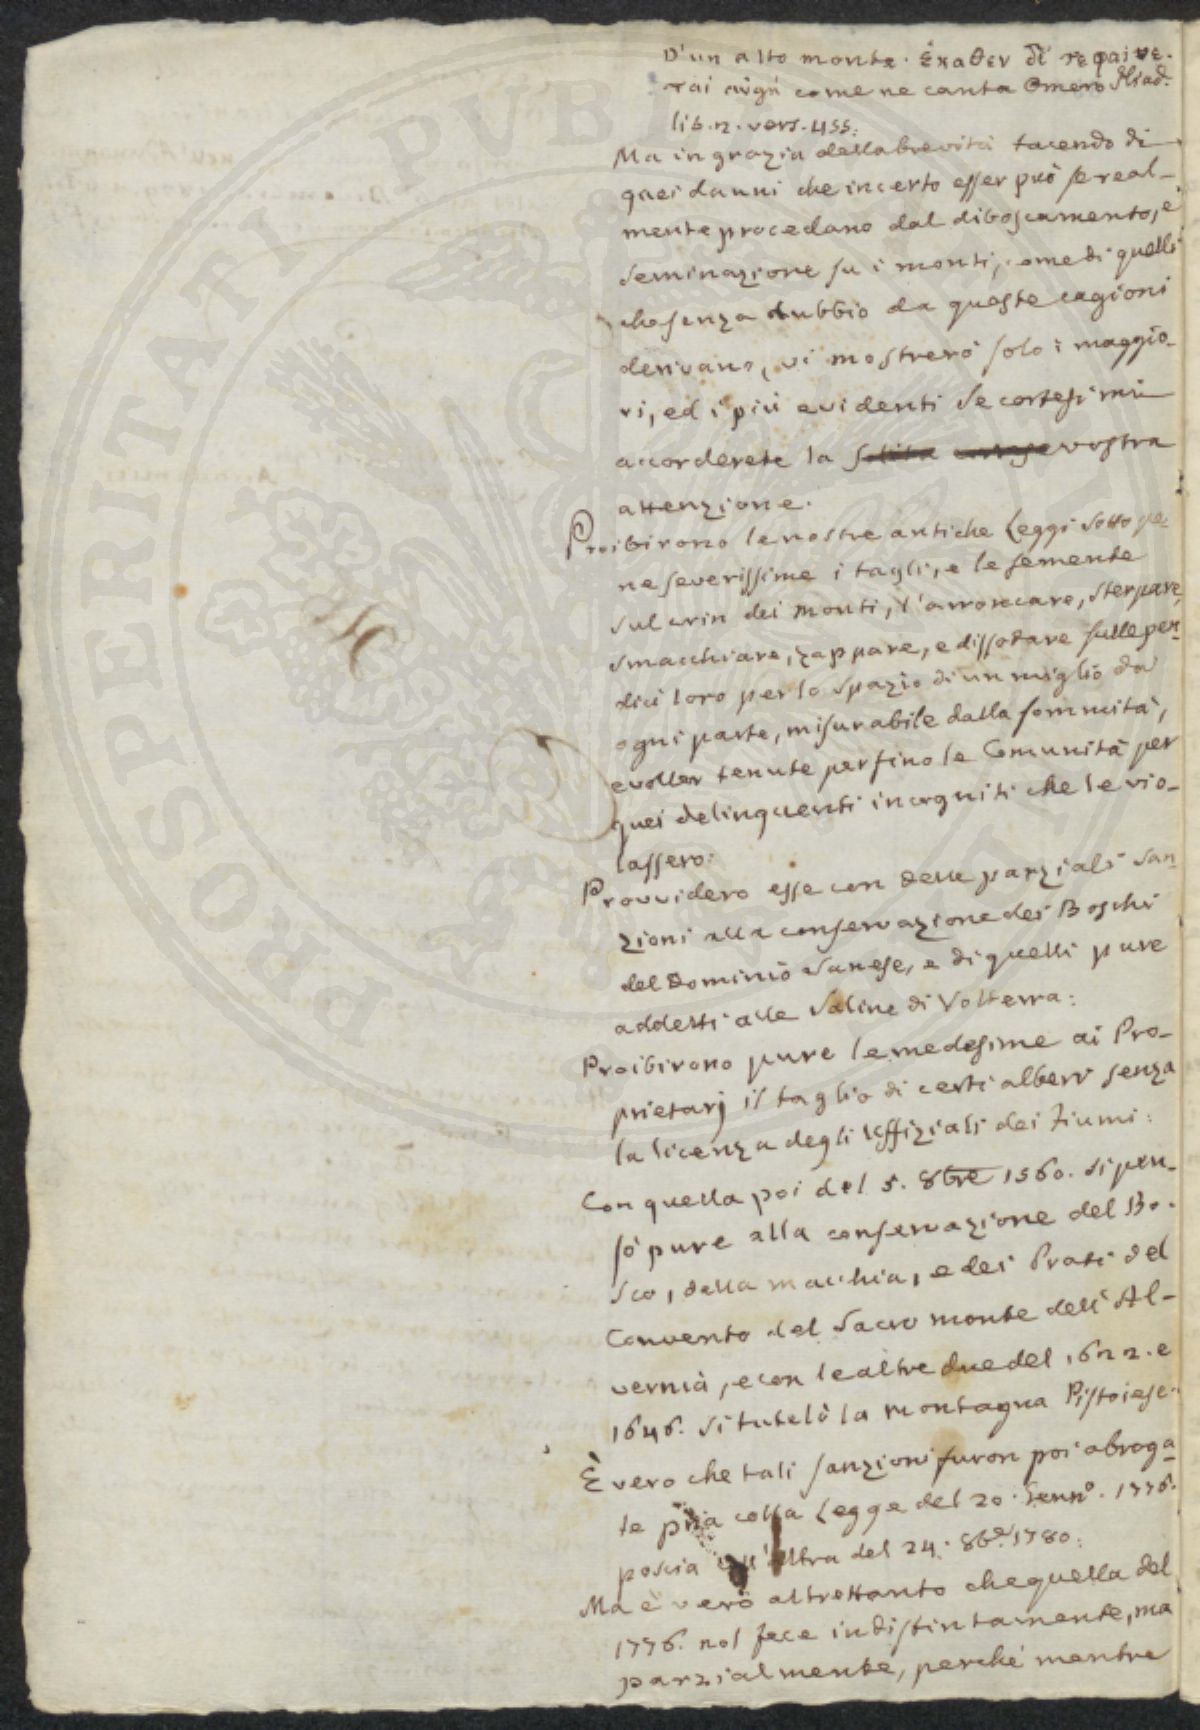 D'un alto monte. ἕκαθεν δέ τε φαίνε-
ται αὐγή come ne canta Omero Iliad.
lib. 2. vers. 455:
Ma in grazia della brevità tacendo di
quei danni che incerto esser può se real-
mente procedano dal diboscamento, e
seminazione su i monti, come di quelli
che senza dubbio da queste cagioni
derivano, vi mostrerò solo i maggio-
ri, ed i più evidenti se cortesi mi
accorderete la solita vostra
attenzione.
Proibirono le nostre antiche Leggi sotto pe-
ne severissime i tagli, e le semente
sul crin dei monti, l'arroncare, sterpare,
smacchiare, zappare, e dissodare sulle pen-
dici loro per lo spazio di un miglio da
ogni parte, misurabile dalla sommità,
e voller tenute perfino le Comunità per
quei delinquenti incogniti che le vio-
lassero:
Provvidero esse con delle parziali san-
zioni alla conservazione dei Boschi
del Dominio Sanese, e di quelli pure
addetti alle Saline di Volterra:
Proibirono pure le medesime ai Pro-
prietarj il taglio di certi alberi senza
la licenza degli Uffiziali dei Fiumi:
Con quella poi del 5. 8bre 1560. si pen-
sò pure alla conservazione del Bo-
sco, della macchia, e dei Prati del
Convento del Sacro monte dell'Al-
vernia, e con le altre due del 1622. e
1646. si tutelò la montagna Pistoiese.
È vero che tali sanzioni furon poi abroga-
te pria colla Legge del 20. Genn°. 1776.
poscia coll'altra del 24. 8bre. 1780:
Ma è vero altrettanto che quella del
1776. nol fece indistintamente, ma
parzialmente, perchè mentre
PROSPERITATI PUBLICAE